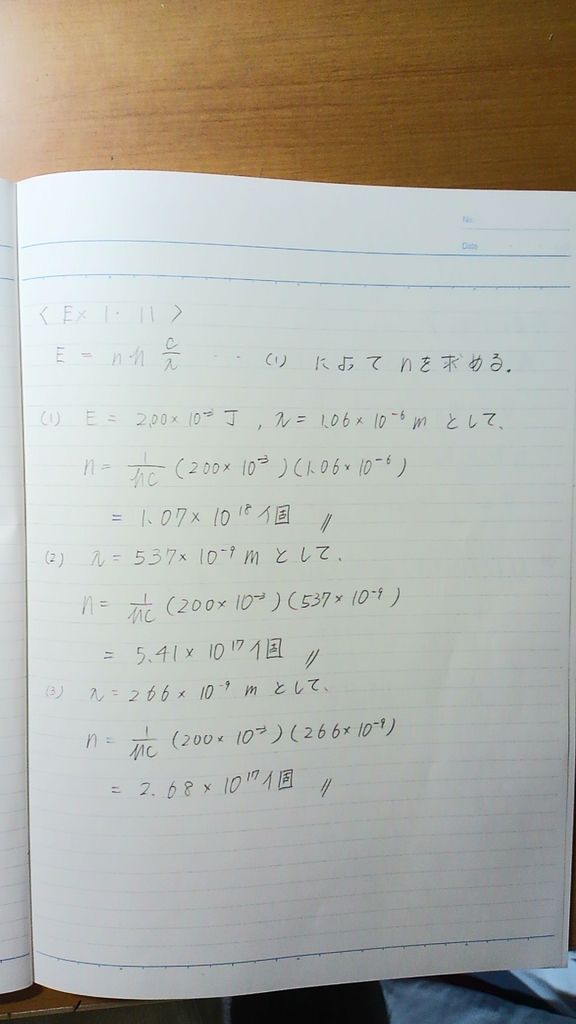 No.
Date
〈 Ex 1・11 〉
E = nh c/λ ‥ (1) によって nを求める.
(1) E = 200×10⁻³ J , λ = 1.06×10⁻⁶ m として、
n = 1/hc (200×10⁻³)(1.06×10⁻⁶)
= 1.07×10¹⁸ 個 〃
(2) λ = 537×10⁻⁹ m として、
n = 1/hc (200×10⁻³)(537×10⁻⁹)
= 5.41×10¹⁷ 個 〃
(3) λ = 266×10⁻⁹ m として、
n = 1/hc (200×10⁻³)(266×10⁻⁹)
= 2.68×10¹⁷ 個 〃